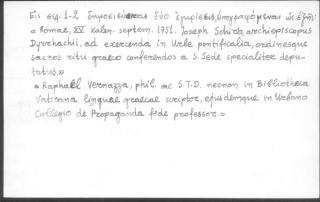 Εἰς σελ. 1-2 δημοσιεύονται δύο ἐγκρίσεις, ὑπογραφόμεναι ὡς ἑξῆς:
« Romae, XV Kalen. septom. 1751. Joseph Schirò, archiepiscopus
Dyrrhachii, ad exercenda in Urbe pontificalia, ordinesque
sacros ritu graeco conferendos a S. Sede specialiter depu-
tatus.»
« Raphaël Vernazza, phil. ac S.T.D. necnon in Bibliotheca
Vaticana linguae graecae scriptor, ejusdemque in Urbano
Collegio de Propaganda fide professor.»